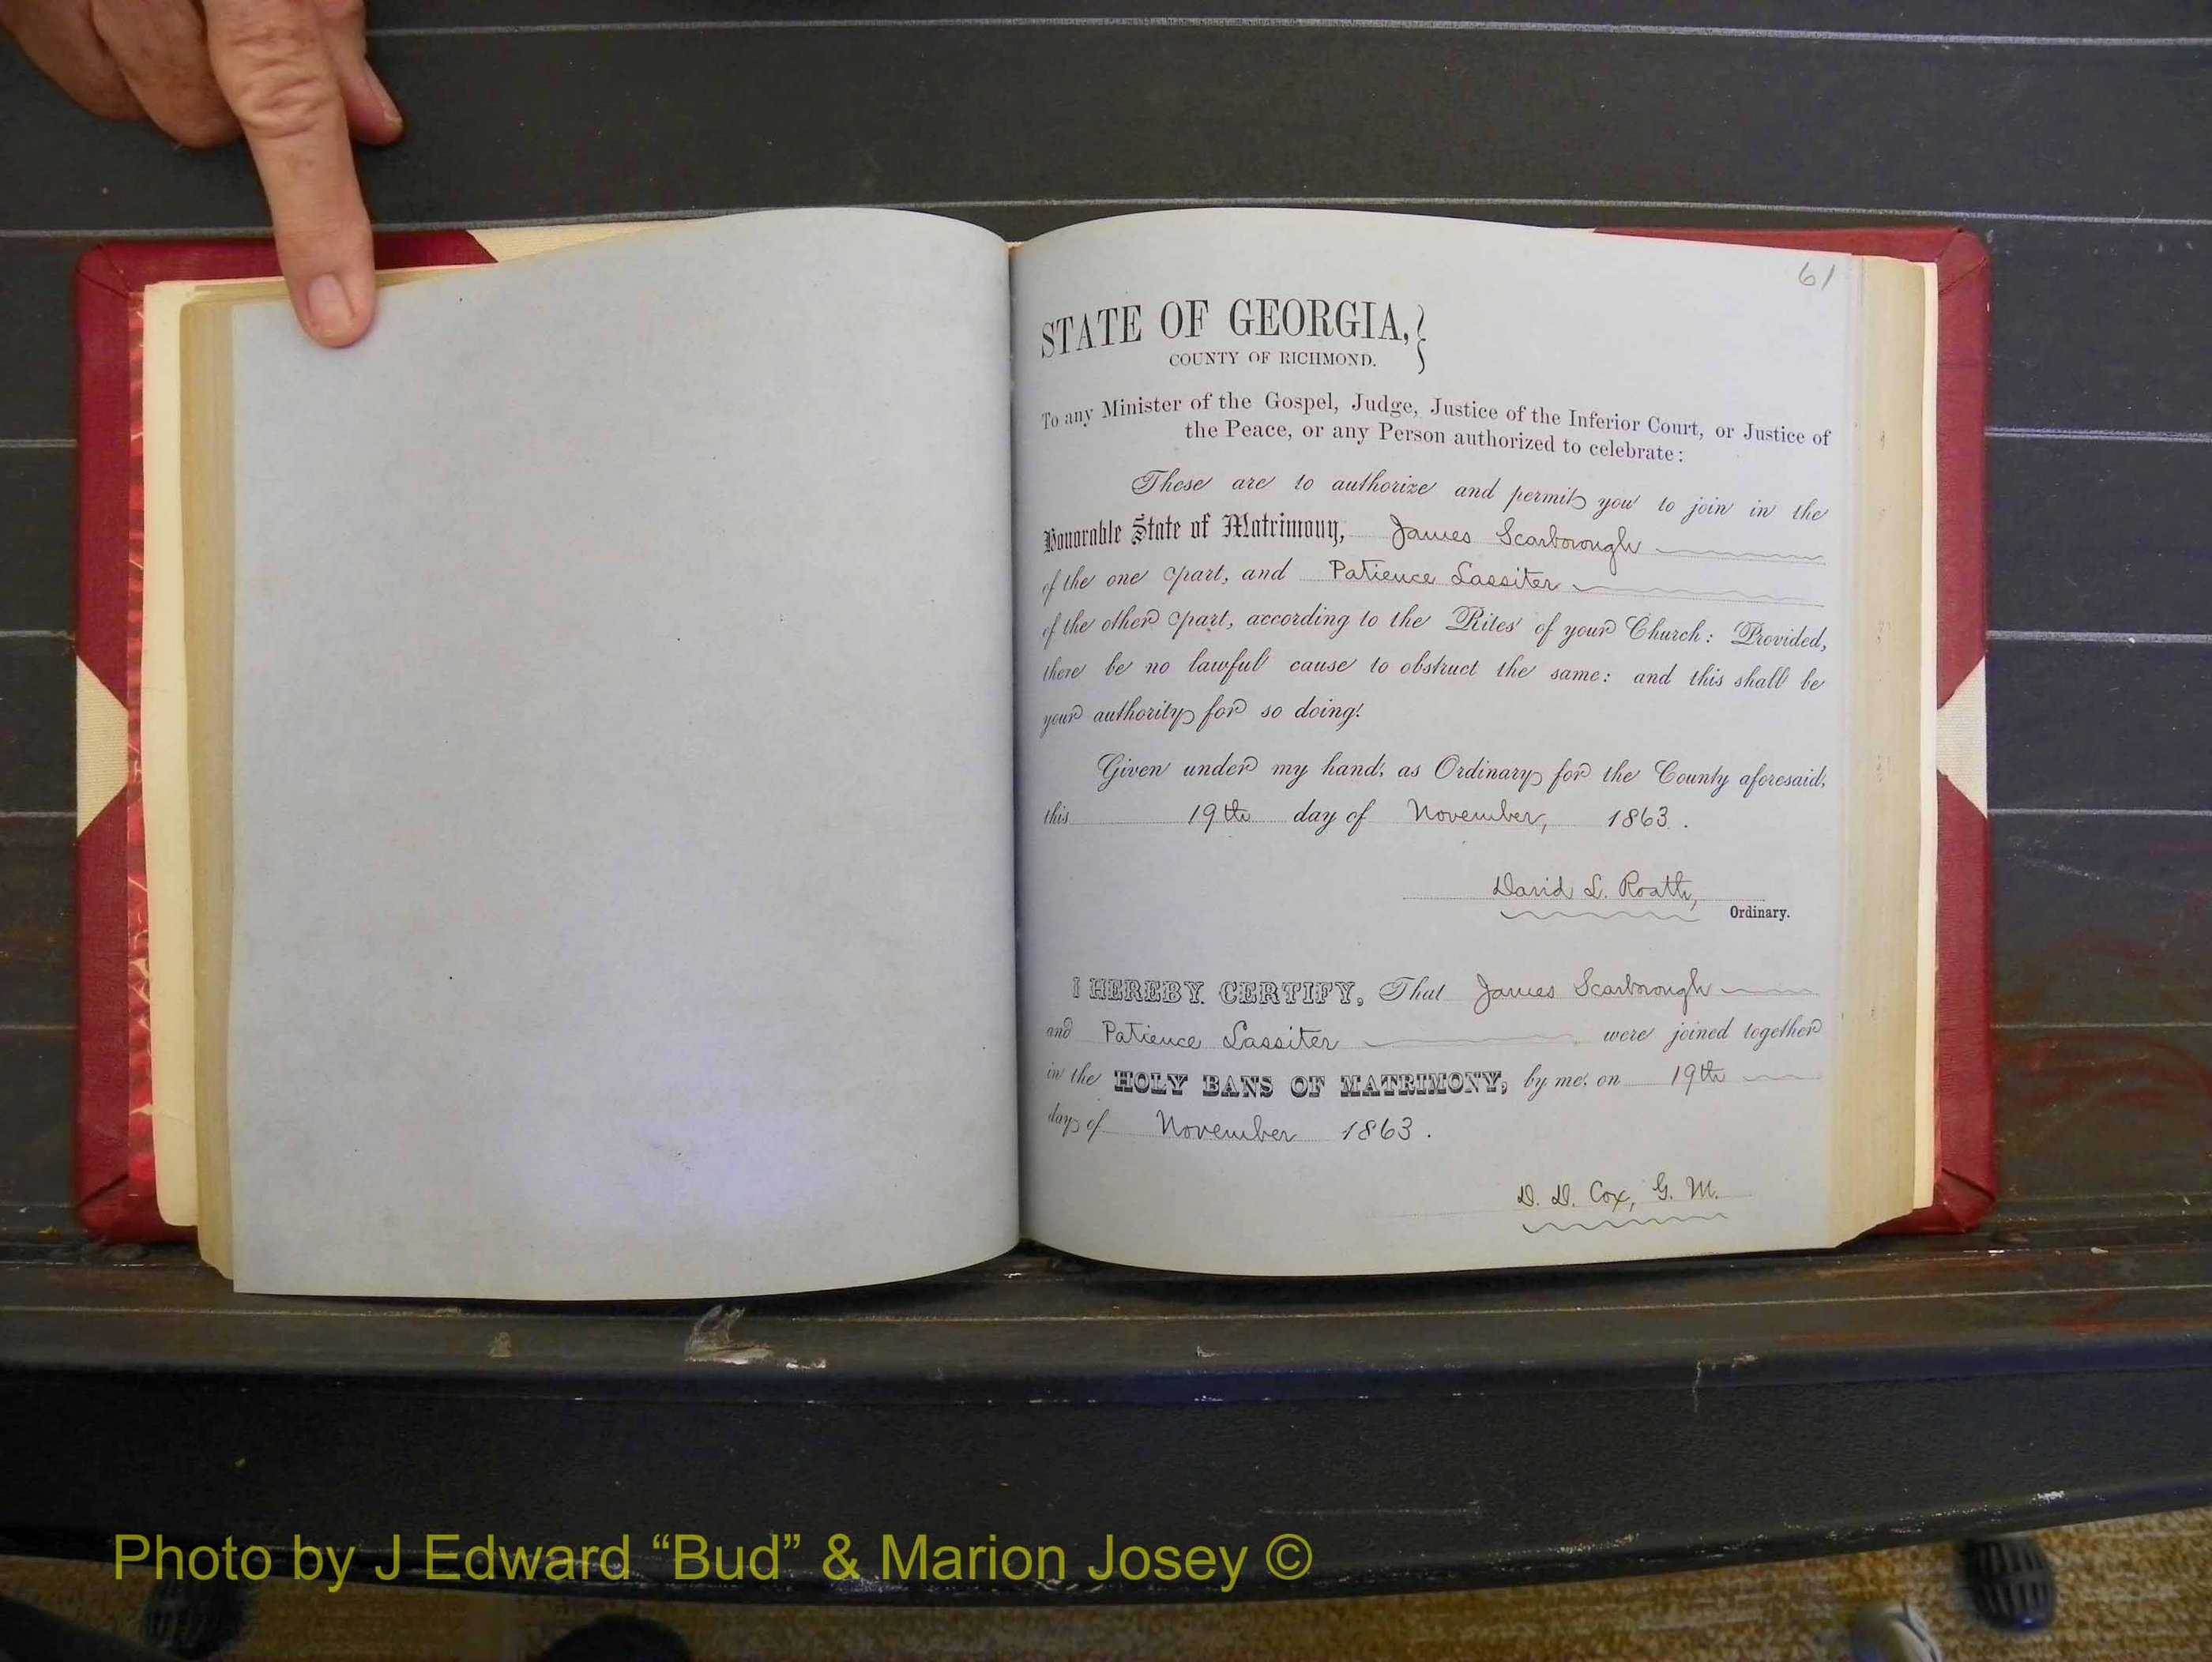 61
STATE OF GEORGIA,
COUNTY OF RICHMOND.
To any Minister of the Gospel, Judge, Justice of the Inferior Court, or Justice of
the Peace, or any Person authorized to celebrate:
These are to authorize and permit you to join in the
Honorable State of Matrimony, James Scarborough
of the one part, and Patience Lassiter
of the other part, according to the Rites of your Church: Provided,
there be no lawful cause to obstruct the same: and this shall be
your authority for so doing.
Given under my hand, as Ordinary for the County aforesaid,
this 19th day of November, 1863.
David L. Roath,
Ordinary.
I HEREBY CERTIFY, That James Scarborough
and Patience Lassiter were joined together
in the HOLY BANS OF MATRIMONY, by me, on 19th
day of November 1863.
D. D. Cox, G. M.
Photo by J Edward “Bud” & Marion Josey ©